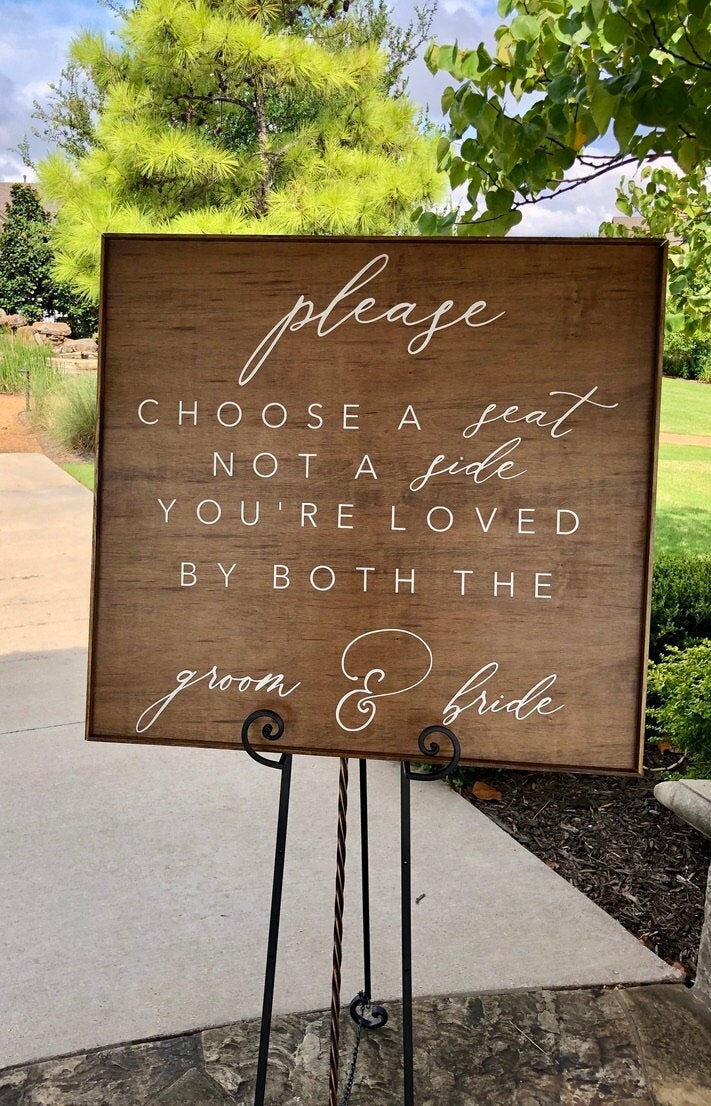 please
CHOOSE A seat
NOT A side
YOU'RE LOVED
BY BOTH THE
groom & bride